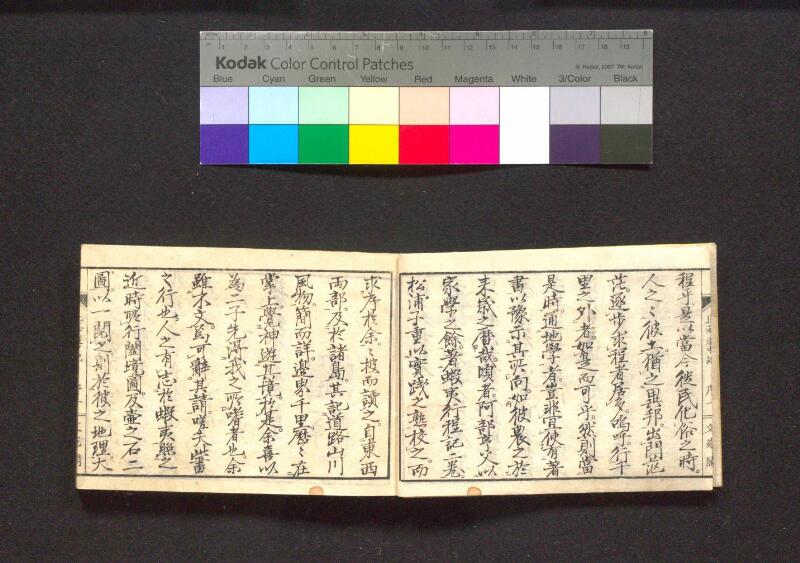 Kodak Color Control Patches
© Kodak, 2007 TM: Kodak
Blue Cyan Green Yellow Red Magenta White 3/Color Black
程乎是以當今彼民化俗之時
人之之彼土猶之異邦出門茫
茫逐步求程者居多嗚呼行千
里之外者如是而可乎然則當
是時通地學者豈非宜使有著
書以豫示其所向如彼農之於
來歲之曆哉頃者阿部
家學之餘著蝦夷行程記二卷
松浦子重以實踐之熟校之而
求序於余々披而讀之自東西
兩部及於諸島其記道路山川
風物簡而詳邊界千里歷々在
掌上覺神遊其境於是余喜以
為二子先得我之所者也余
雖不文為可辭其請嗟夫此書
之行也人之有志於蝦夷照之
近時所行闔境圖及壷之石二
圖以一閱之則於彼之地理大